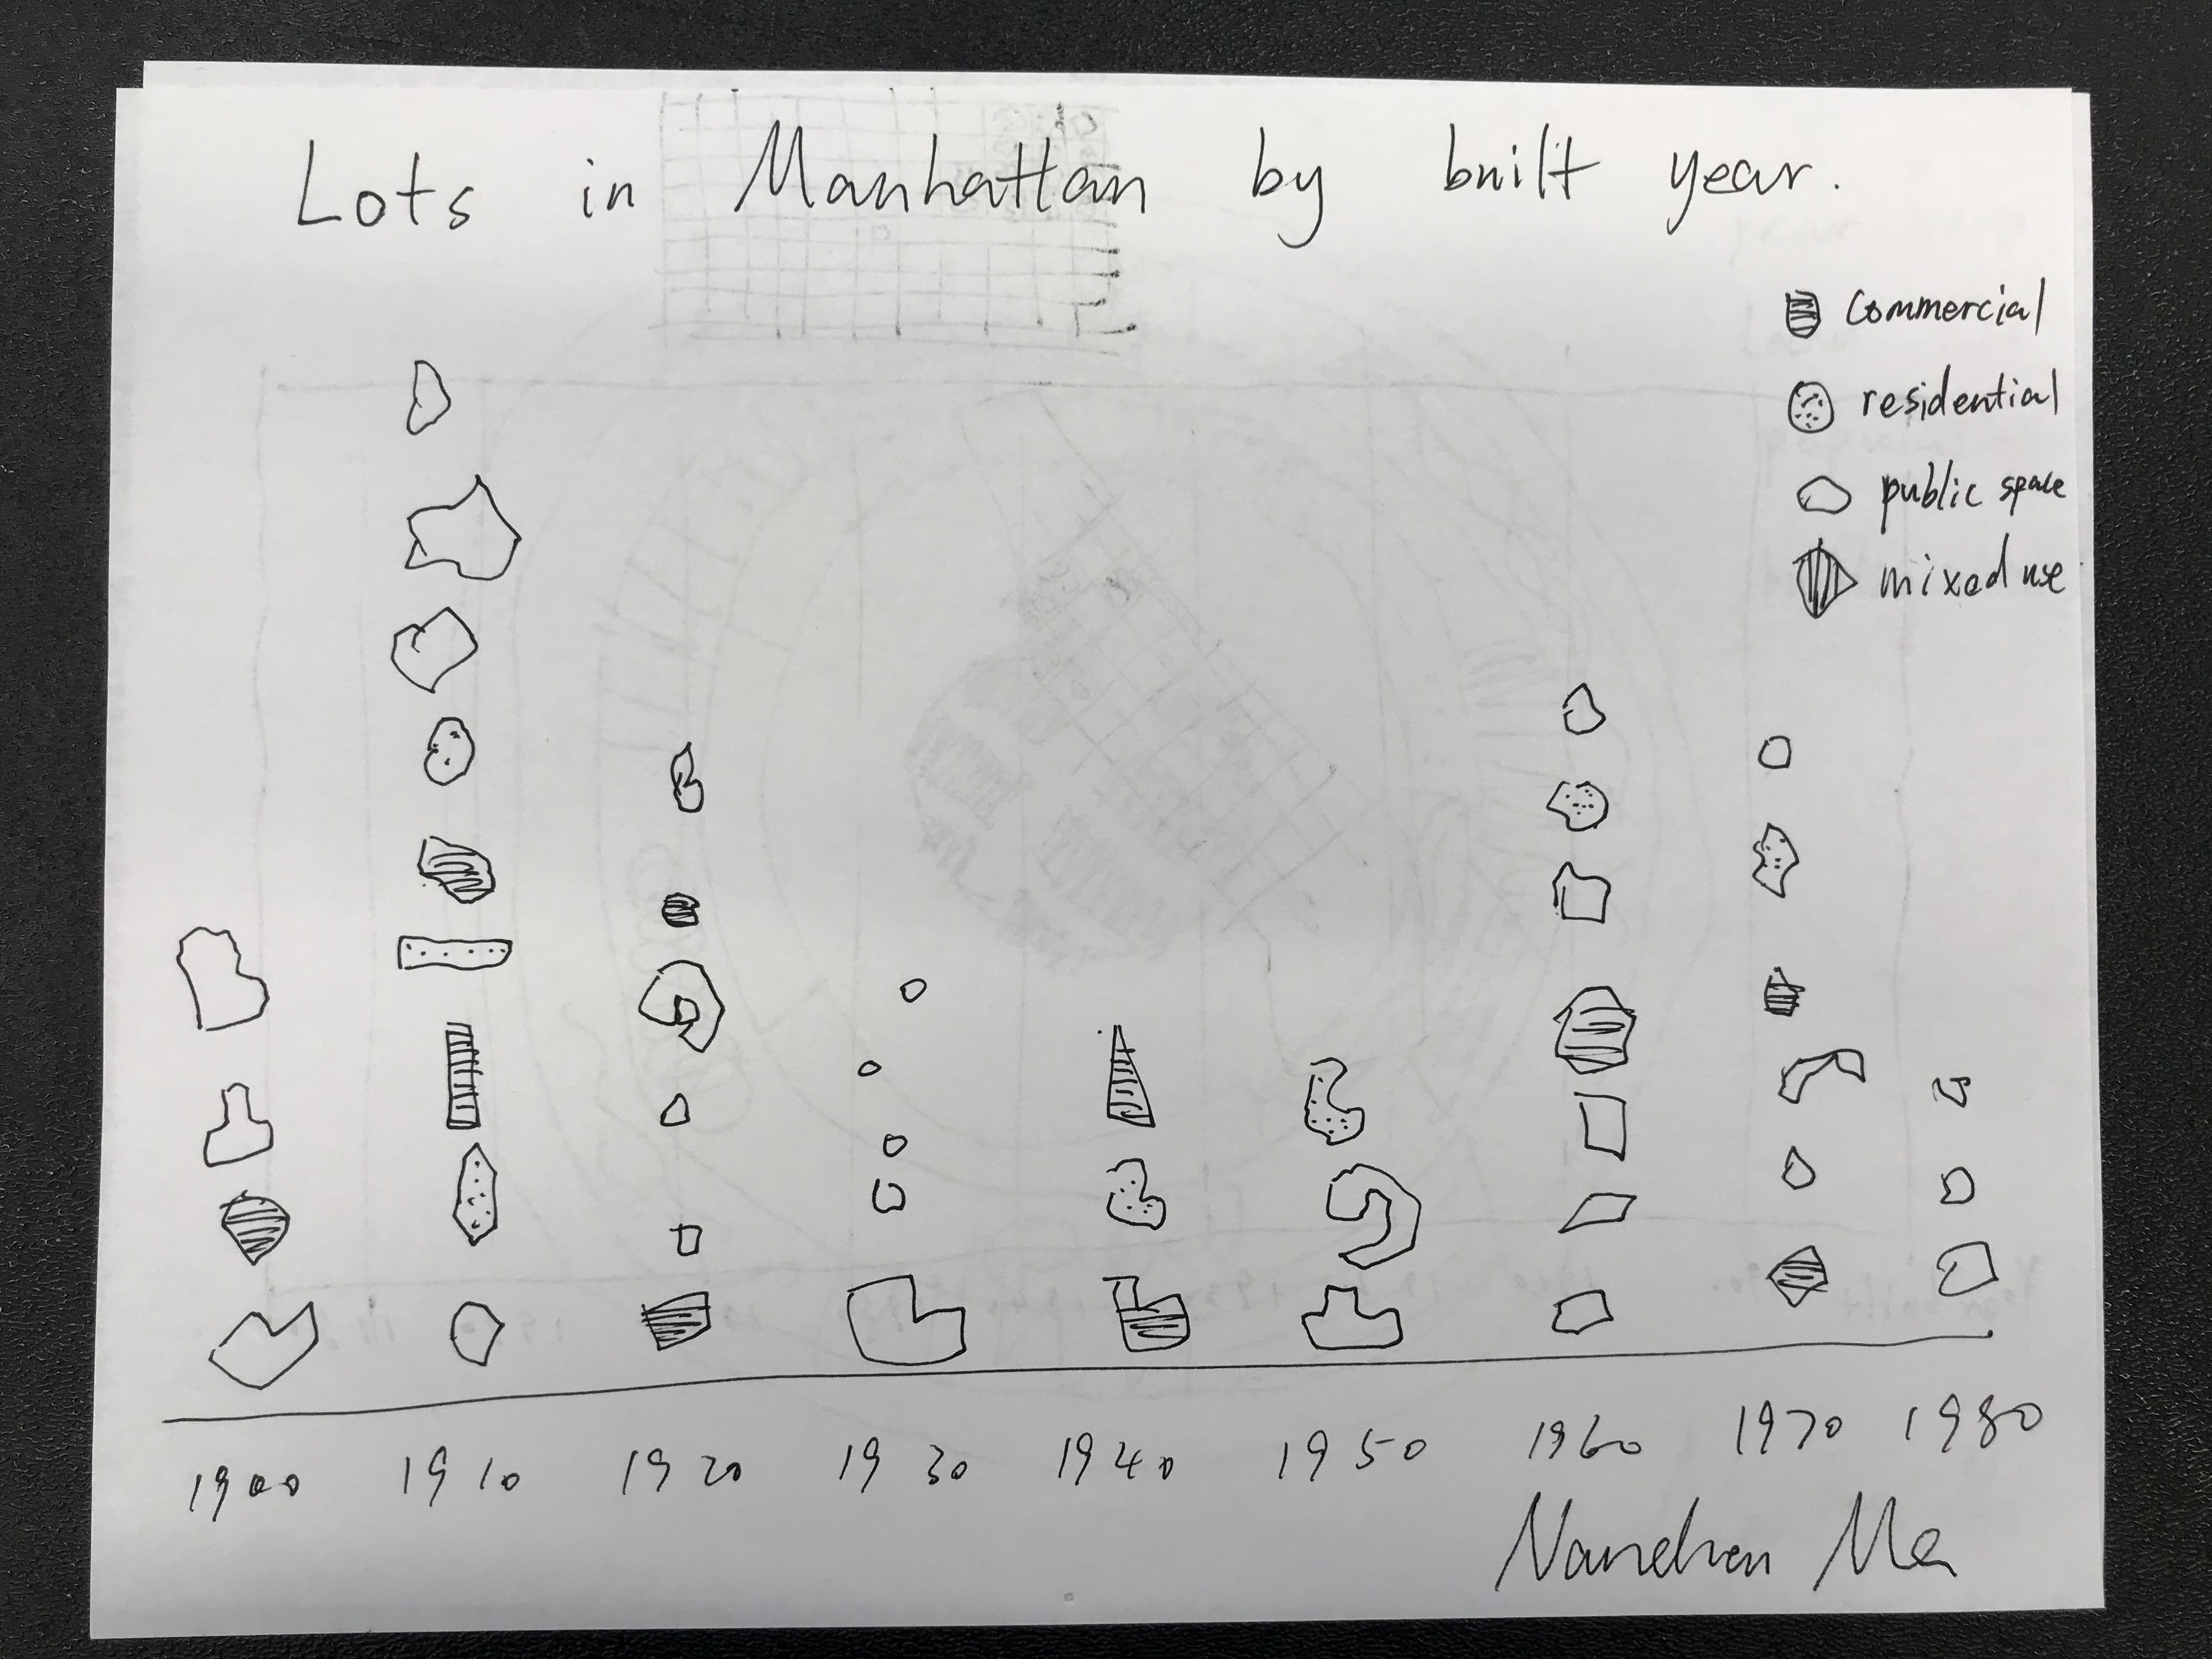 Lots in Manhattan by built year.
commercial
residential
public space
mixed use
1900 1910 1920 1930 1940 1950 1960 1970 1980